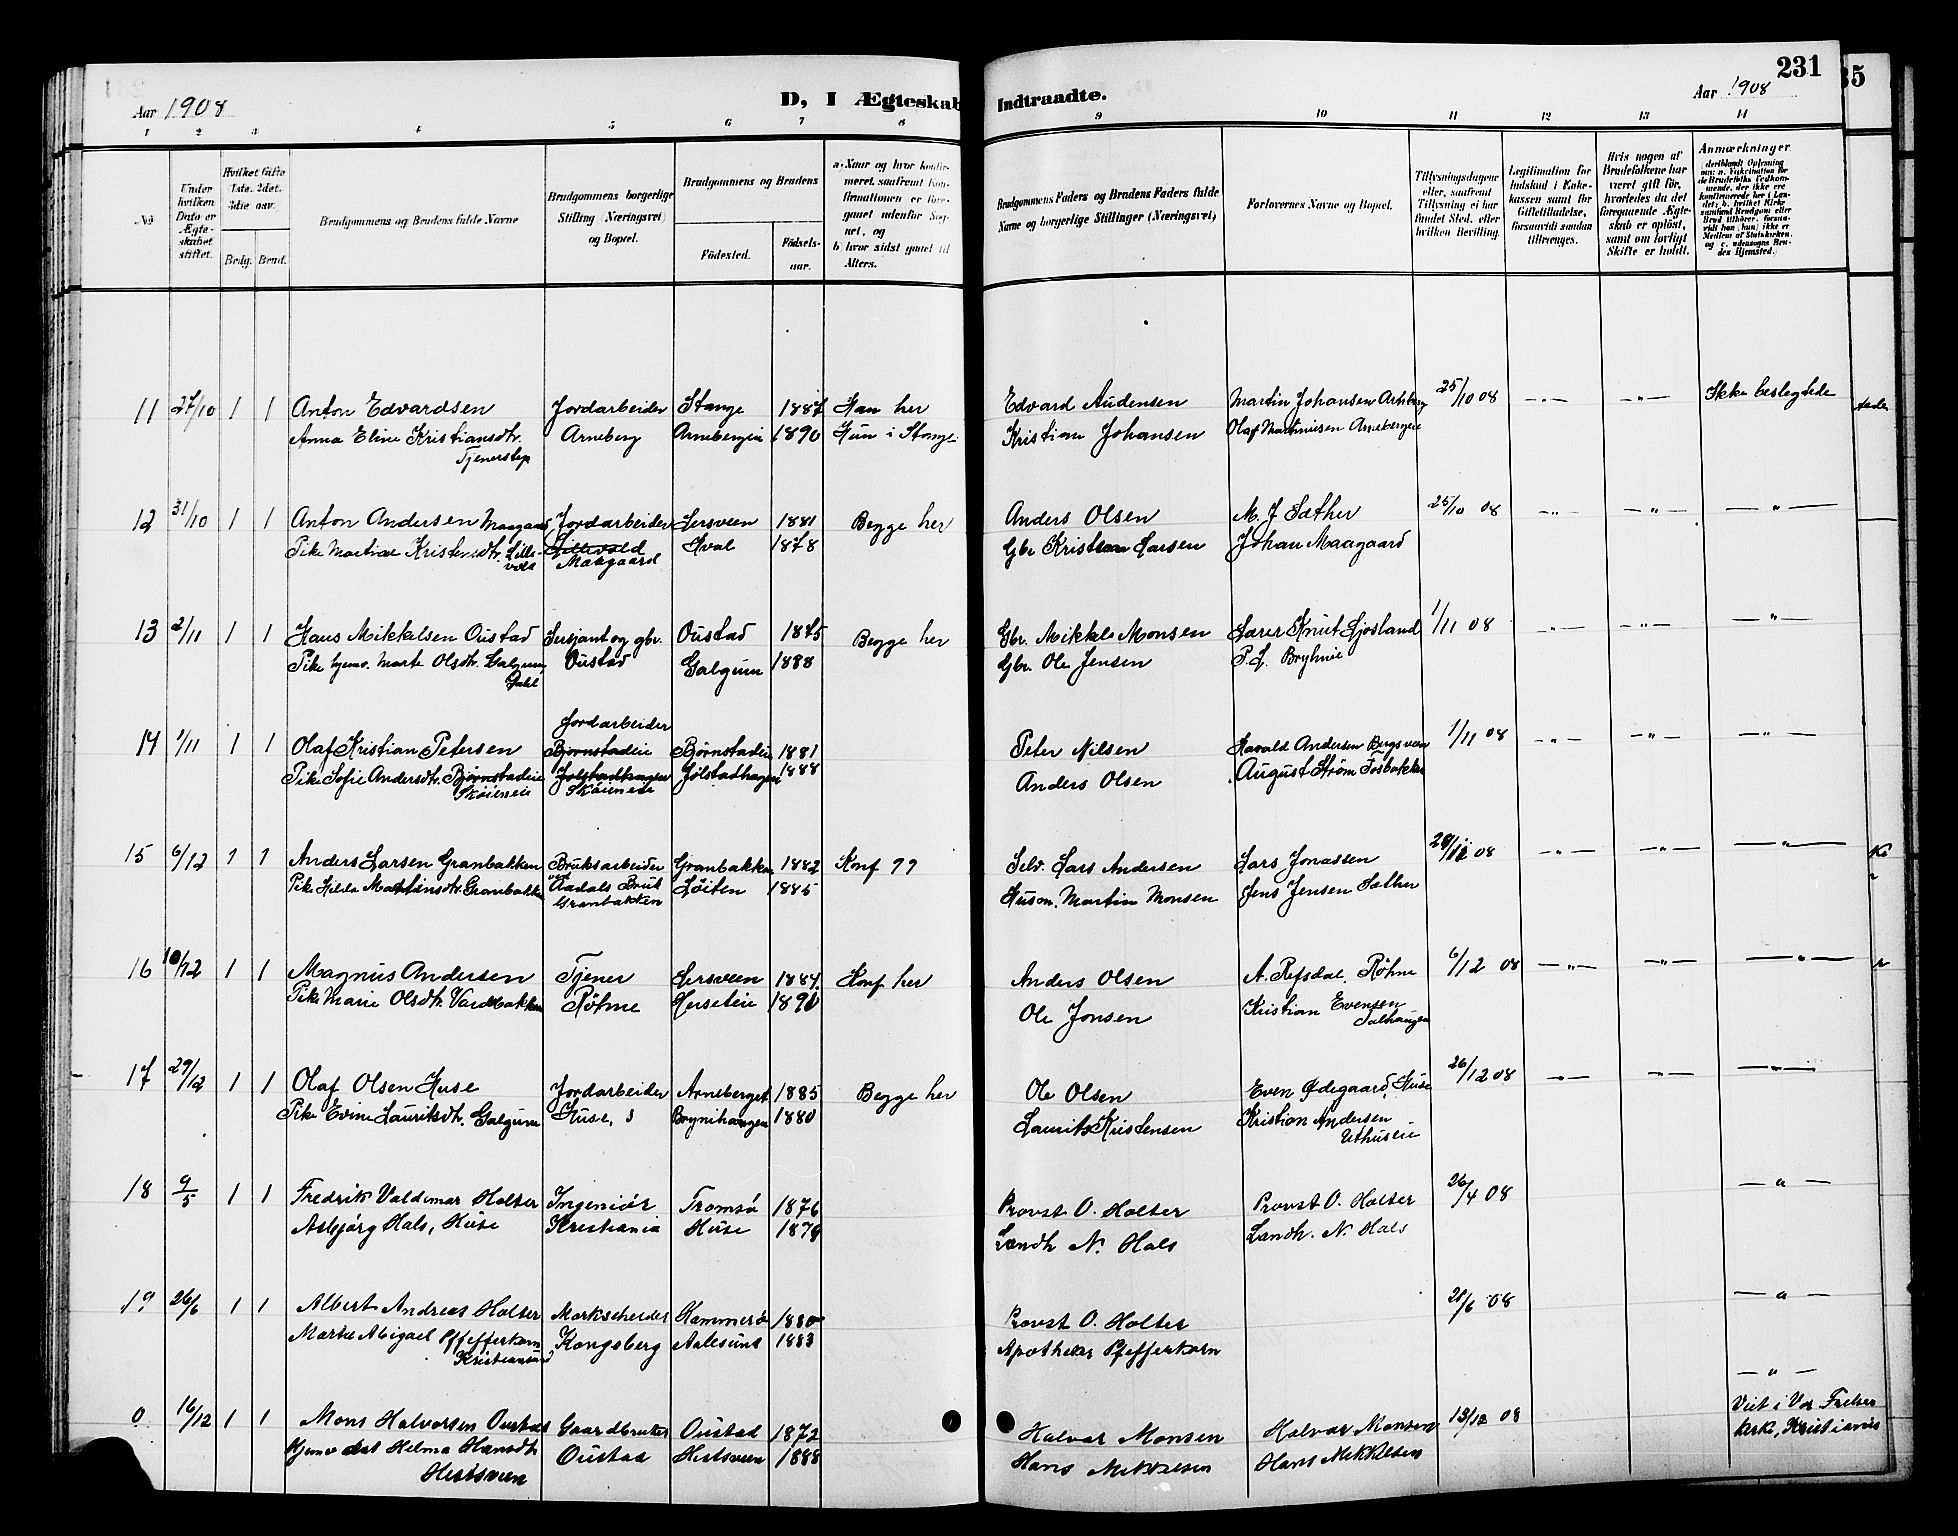 231
35
Aar 1908
D, I Ægteskab Indtraadte.
Aar 1908
1 2 3 4 5 6 7 8 9 10 11 12 13 14
No
Under hvilken Dato er Ægteskabet stiftet.
Hvilket Gifte 1ste. 2det. 3die osv.
Brdg. Brud.
Brudgommens og Brudens fulde Navne
Brudgommens borgerlige Stilling (Næringsvei) og Bopæl.
Brudgommens og Brudens
Fødested.
Fødselsaar.
a. Naar og hvor konfirmeret, saafremt Konfirmationen er foregaaet udenfor Sognet, og
b) hvor sidst gaaet til Alters.
Brudgommens Faders og Brudens Faders fulde Navne og borgerlige Stillinger (Næringsvei)
Forlovernes Navne og Bopæl.
Tillysningsdagene eller, saafremt Tillysning ei har fundet Sted, efter hvilken Bevilling.
Legitimation for Indskud i Enkekassen samt for Giftetilladelse, forsaavidt saadan tiltrænges.
Hvis nogen af Brudefolkene har været gift før, hvorledes da det foregaaende Ægteskab er opløst, samt om lovligt Skifte er holdt.
Anmærkninger
11 27/10 1 1 Anton Edvardsen Jordarbeider Stange 1887 Han her Edvard Audensen Martin Johansen 25/10 08 —„— —„— Ikke beslegtede
Anna Eline Kristiansdtr. Arneberg Arnebergeie 1890 Hun i Stange Kristian Johansen Olaf Martinisen Arnebergeie
Tjenerstep
12 31/10 1 1 Anton Andersen Maagaard Jordarbeider Lersveen 1881 Begge her Anders Olsen M. J Sæther 25/10 08 —„— —„— —„—
Pike Martine Kristensdtr. Lille- Lillevold Hval 1878 Gbr Kristian Larsen Johan Maagaard
vold Maagaard
13 2/11 1 1 Hans Mikkelsen Oustad Sersjant og gbr. Oustad 1875 Begge her Gbr. Mikkel Monsen Lærer Knut Ljosland 1/11 08 —„— —„— —„—
Pike hjemv. Marte Olsdtr. Galgum Oustad Galgum 1888 Gbr. Ole Jensen P. L. Bryhnie
14 1/11 1 1 Olaf Kristian Petersen Jordarbeider Bjørnstadeie Bjørnstadeie 1881 Peter Nilsen Harald Andersen Bergsveen 1/11 08 —„— —„— —„—
Pike Sofie Andersdtr. Bjørnstadeie Jølstadhagen Jølstadhagen 1888 Anders Olsen August Strøm Fosbakken
Skøieneie Skøieneie
15 6/12 1 1 Anders Larsen Granbakken Bruksarbeider Granbakken 1882 Konf 99 Selv. Lars Andersen Lars Jonassen 29/11 08 —„— —„— —„—
Pike Hilda Martinsdtr. Granbakken ved Aadals Bruk Løiten 1885 Husm. Martin Monsen Jens Jensen Sæther
Granbakken
16 10/12 1 1 Magnus Andersen Tjener Lersveen 1884 Konf her Anders Olsen A. Refsdal. Røhne 6/12 08 —„— —„— —„—
Pike Marie Olsdtr. Vardebakken Røhne Herseteie 1890 Ole Jonsen Kristian Evensen
17 29/12 1 1 Olaf Olsen Huse Jordarbeider Arneberget 1885 Begge her Ole Olsen Even Ødegaard, Huse 26/12 08 —„— —„— —„—
Pike Evine Lauritsdtr. Galgum Huse, s Brynihaugen 1880 Laurits Kristensen Kristian Andersen
Uthuseie
18 9/5 1 1 Fredrik Valdemar Holter Ingeniør Tromsø 1876 Provst O. Holter Provst O. Holter 26/4 08 —„—
Asbjørg Hals, Huse Kristiania Huse 1879 Landh N. Hals Landh. N. Hals
19 26/6 1 1 Albert Andreas Holter Markscheider Hammerø 1880 Provst O. Holter 21/6 08 —„—
Marie Abigael Pfefferkorn Kongsberg Aalesund 1883 Apotheker Pfefferkorn
Kristiansund
—„—
0 16/12 1 1 Mons Halvorsen Oustad Gaardbruker Oustad 1872 Halvor Monsen Halvor Monsen 13/12 08 Viet i Vor Frelser
Hjemv. dat Helma Hansdtr. Oustad Hestsveen 1888 Hans Mikkelsen Hans Mikkelsen kirke, Kristiania
Hestsveen